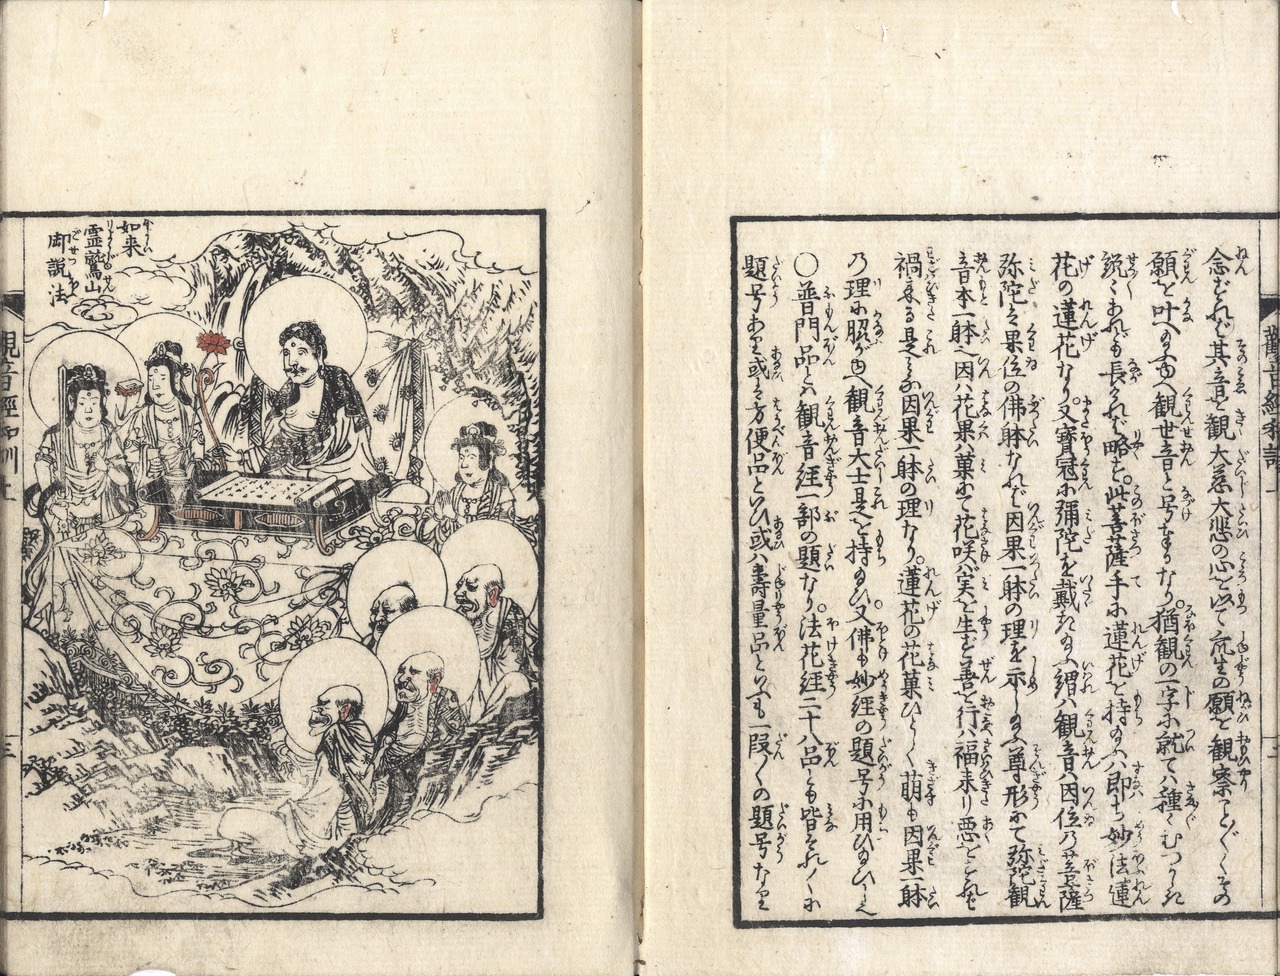 念ずれバ其音を観大慈大悲の心を以て衆生の願を観察しことごとくその
願を叶へ給ふゆへ観世音と号奉るなり。猶観の一字に就てハ種々むつかしき
説々あれども長ければ略す。此菩薩手に蓮花を持給ハ即ち妙法蓮
花の蓮花なり。又寶冠に彌陀を戴き給ふ謂ハ観音ハ因位乃菩薩
弥陀ハ果位の佛躰なれバ因果一躰の理を示し給ふ尊形にて弥陀観
音本一躰也因ハ花果ハ菓にて花咲バ実を生ず善を行ハ福来り悪をすれバ
禍来る是ミな因果一躰の理なり。蓮花の花菓ひとしく萌も因果一躰
乃理に昭がゆへ観音大士是を持給ひ。又佛も妙経の題号に用ひ給ひし也
〇普門品とハ観音経一部の題なり。法花経二十八品とも皆それ〳〵に
題号あり或ハ方便品といひ或ハ壽量品といふも一段〳〵の題号なり
観音經和訓 上
如来
霊鷲山
御説法
三